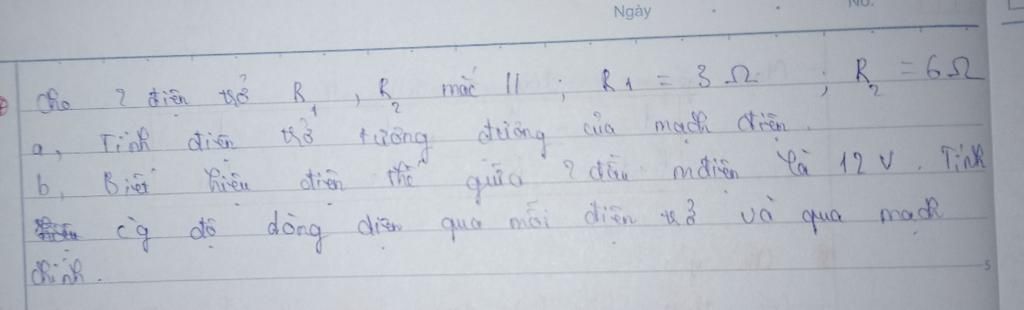 Ngày . . No.
Cho 2 điện trở R1, R2 mắc // ; R1 = 3 Ω ; R2 = 6 Ω
a, Tính điện trở tương đương của mạch điện.
b, Biết hiệu điện thế giữa 2 đầu mđiện là 12 V. Tính
cg độ dòng điện qua mỗi điện trở và qua mạch
chính.
5